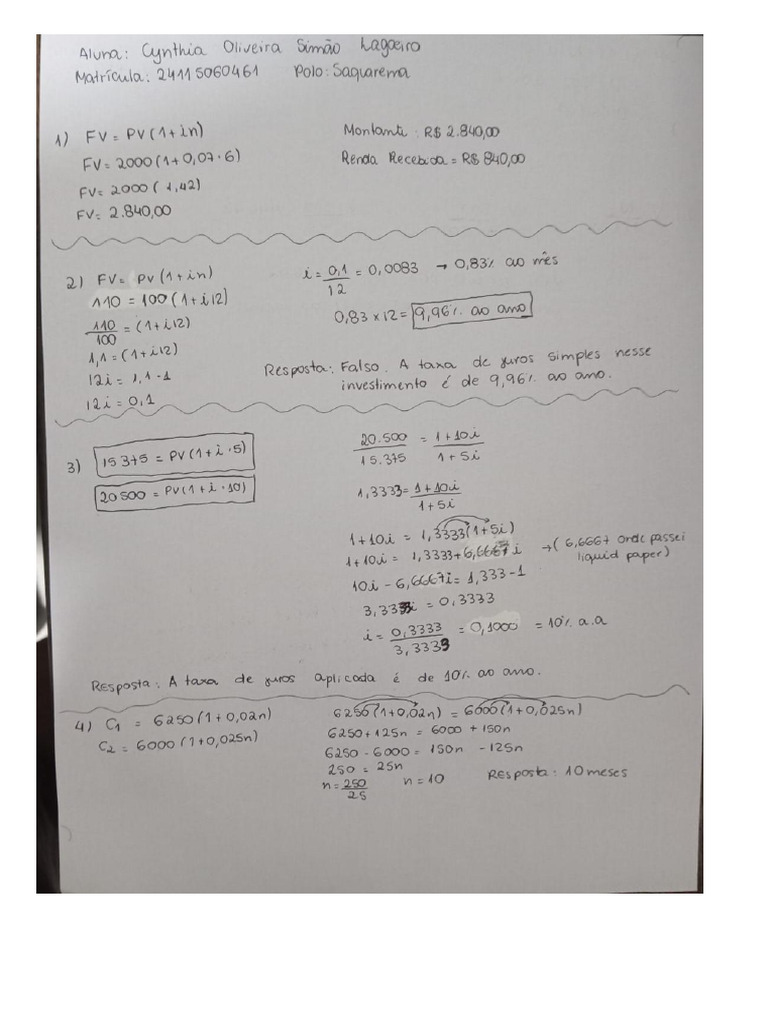 Aluna: Cynthia Oliveira Simão Lagoeiro
Matrícula: 24115060461 Polo: Saquarema
1) FV = PV(1+in)
FV = 2000(1+0,07·6)
FV = 2000(1,42)
FV = 2.840,00
Montante: R$ 2.840,00
Renda Recebida = R$ 840,00
2) FV = PV(1+in)
110 = 100(1+i12)
110/100 = (1+i12)
1,1 = (1+i12)
12i = 1,1-1
12i = 0,1
i = 0,1/12 = 0,0083 → 0,83% ao mês
0,83 x 12 = 9,96% ao ano
Resposta: Falso. A taxa de juros simples nesse
investimento é de 9,96% ao ano.
3) 15375 = PV(1+i·5)
20500 = PV(1+i·10)
20.500/15.375 = 1+10i/1+5i
1,3333 = 1+10i/1+5i
1+10i = 1,3333(1+5i)
1+10i = 1,3333+6,6667i → (6,6667 onde passei
liquid paper)
10i - 6,6667i = 1,333-1
3,333i = 0,3333
i = 0,3333/3,3333 = 0,1000 = 10% a.a
Resposta: A taxa de juros aplicada é de 10% ao ano.
4) C1 = 6250(1+0,02n)
C2 = 6000(1+0,025n)
6250(1+0,02n) = 6000(1+0,025n)
6250+125n = 6000+150n
6250-6000 = 150n -125n
250 = 25n
n = 250/25 n = 10 Resposta: 10 meses